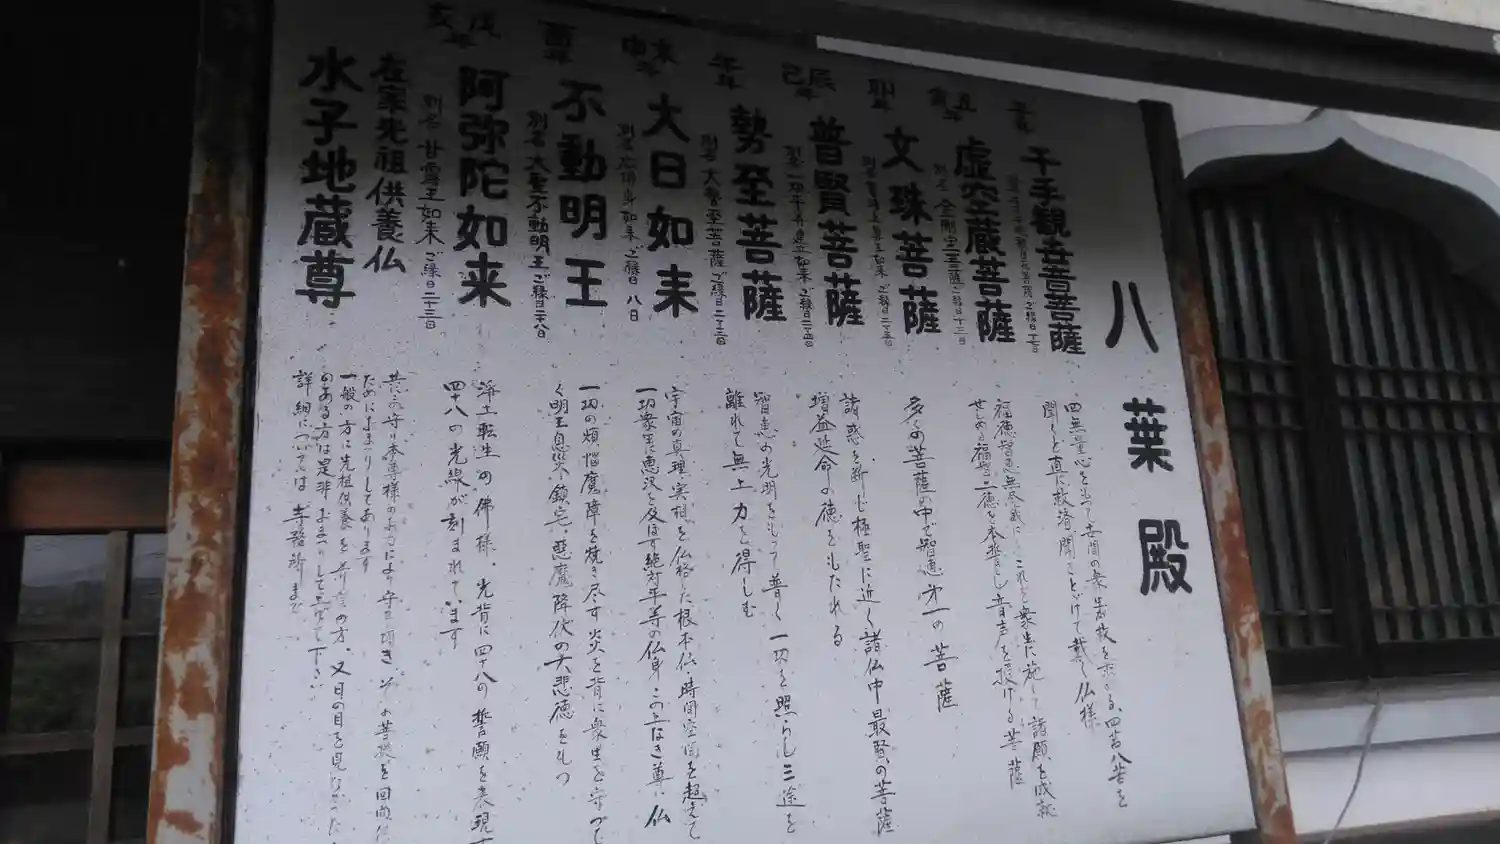 八葉殿
子年
千手観音菩薩
四無量心をもって世間の衆生が救を求める、四苦八苦を
聞くと直に救済、聞きとどけて戴く仏様
丑 寅年
虚空蔵菩薩
福徳智恵無尽蔵にこれを衆生に施し諸願を成就
せしめる福智二徳を本誓とし音声を授ける菩薩
卯年
文珠菩薩
多くの菩薩の中で智恵第一の菩薩
辰 巳年
普賢菩薩
諸惑を断じ極聖に近く諸仏中最賢の菩薩
増益延命の徳をもたれる
午年
勢至菩薩
別号 大勢至菩薩 ご縁日二十三日
智恵の光明をもって普く一切を照らし三途を
離れて無上力を得しむ
未 申年
大日如来
ご縁日 八日
宇宙の真理・実相を仏格した根本仏、時間空間を超えて
一切衆生に恵沢を及ぼす絶対平等の仏身この上なき尊い仏
酉年
不動明王
別名 大聖不動明王 ご縁日二十八日
一切の煩悩魔障を焼き尽す炎を背に衆生を守って
く明王息災、鎮宅、悪魔降伏の大悲徳をもつ
戌 亥年
阿弥陀如来
別名 甘露王如来 ご縁日二十三日
浄土転生の佛様、光背に四十八の誓願を表現す
四十八の光線が刻まれています
在家先祖供養仏
水子地蔵尊
共に守り本尊様のお力により守って頂き、その菩提を回向
ためにおまつりしてあります
一般の方に先祖供養を の方、又日の目を見なかった
のある方は是非おまつりして 下さい
詳細については寺務所まで